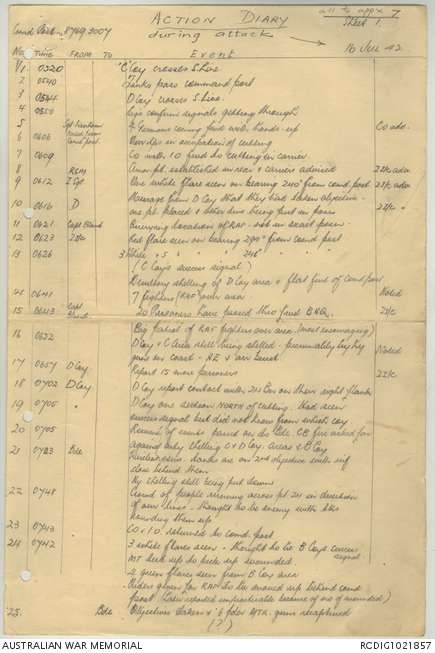 all to appx 7
Sheet 1.
ACTION DIARY
during attack
16 Jul 42
Comd Post - 8749 3007
No Time FROM TO Event
1 0520 C Coy crosses S Line
2 0540 Tanks pass command post
3 0544 D Coy crosses S. Line.
4 0550 Sigs confirms signals getting through
5 Germans coming fwd with hands up Co adv.
6 0606 from comd post. Novodes in occupation of cutting
7 0609 Co with 10 fwd to cutting in carrier
8 RSM Amn pt established in area & carriers advised 2i/c adv
9 0612 I Sgt One white flare seen on bearing 240° from comd post 2i/c adv
10 0616 D Message from D Coy that they had taken objective.
one pl placed & better Bn being put in posn 2i/c
11 0621 Capt Bland Enquiring location of RAP - not in exact posn.
12 0623 Red flare seen on bearing 290° from comd post
13 0626 3 White
(C Coy's success signal)
Desultory shelling of D Coy area & flat fwd of comd post
14 0641 7 fighters (RAF) over area Noted
15 0643 Capt Bland 20 Prisoners have passed thro fwd BHQ. 2i/c
16 0652 Big patrol of RAF fighters over area (most encouraging)
D Coy & C Area still being shelled - presumably by Hy
guns on coast - HE & air burst Noted
17 0657 D Coy Report 15 more prisoners 2i/c
18 0702 D Coy D Coy report contact with 2/23 Bn on their right flank
19 0705 D Coy one section NORTH of cutting. Had seen
success signal but did not know from which coy
20 0705 Request of passed on to Bde. CB fire asked for
against enemy shelling C & D Coy. areas & B Coy
21 0723 Bde tanks are on 2nd objective with inf
close behind them
Hy shelling still being put down
22 0748 Crowd of people running across pt 24 in direction
of our lines - thought to be enemy with tks
rounding them up
23 0743 CO & IO returned to comd. post
24 0742 3 white flares seen - thought to be B Coy's success signal
MT sent up to pick up wounded
2 green flares seen from B Coy area
Orders given for RAP to be moved up behind comd
post. (Later reported impracticable because of no of wounded)
25 Bde Objectives taken & 6 pdr ATK. guns recaptured
(?)
AUSTRALIAN WAR MEMORIAL
RCDIG1021857